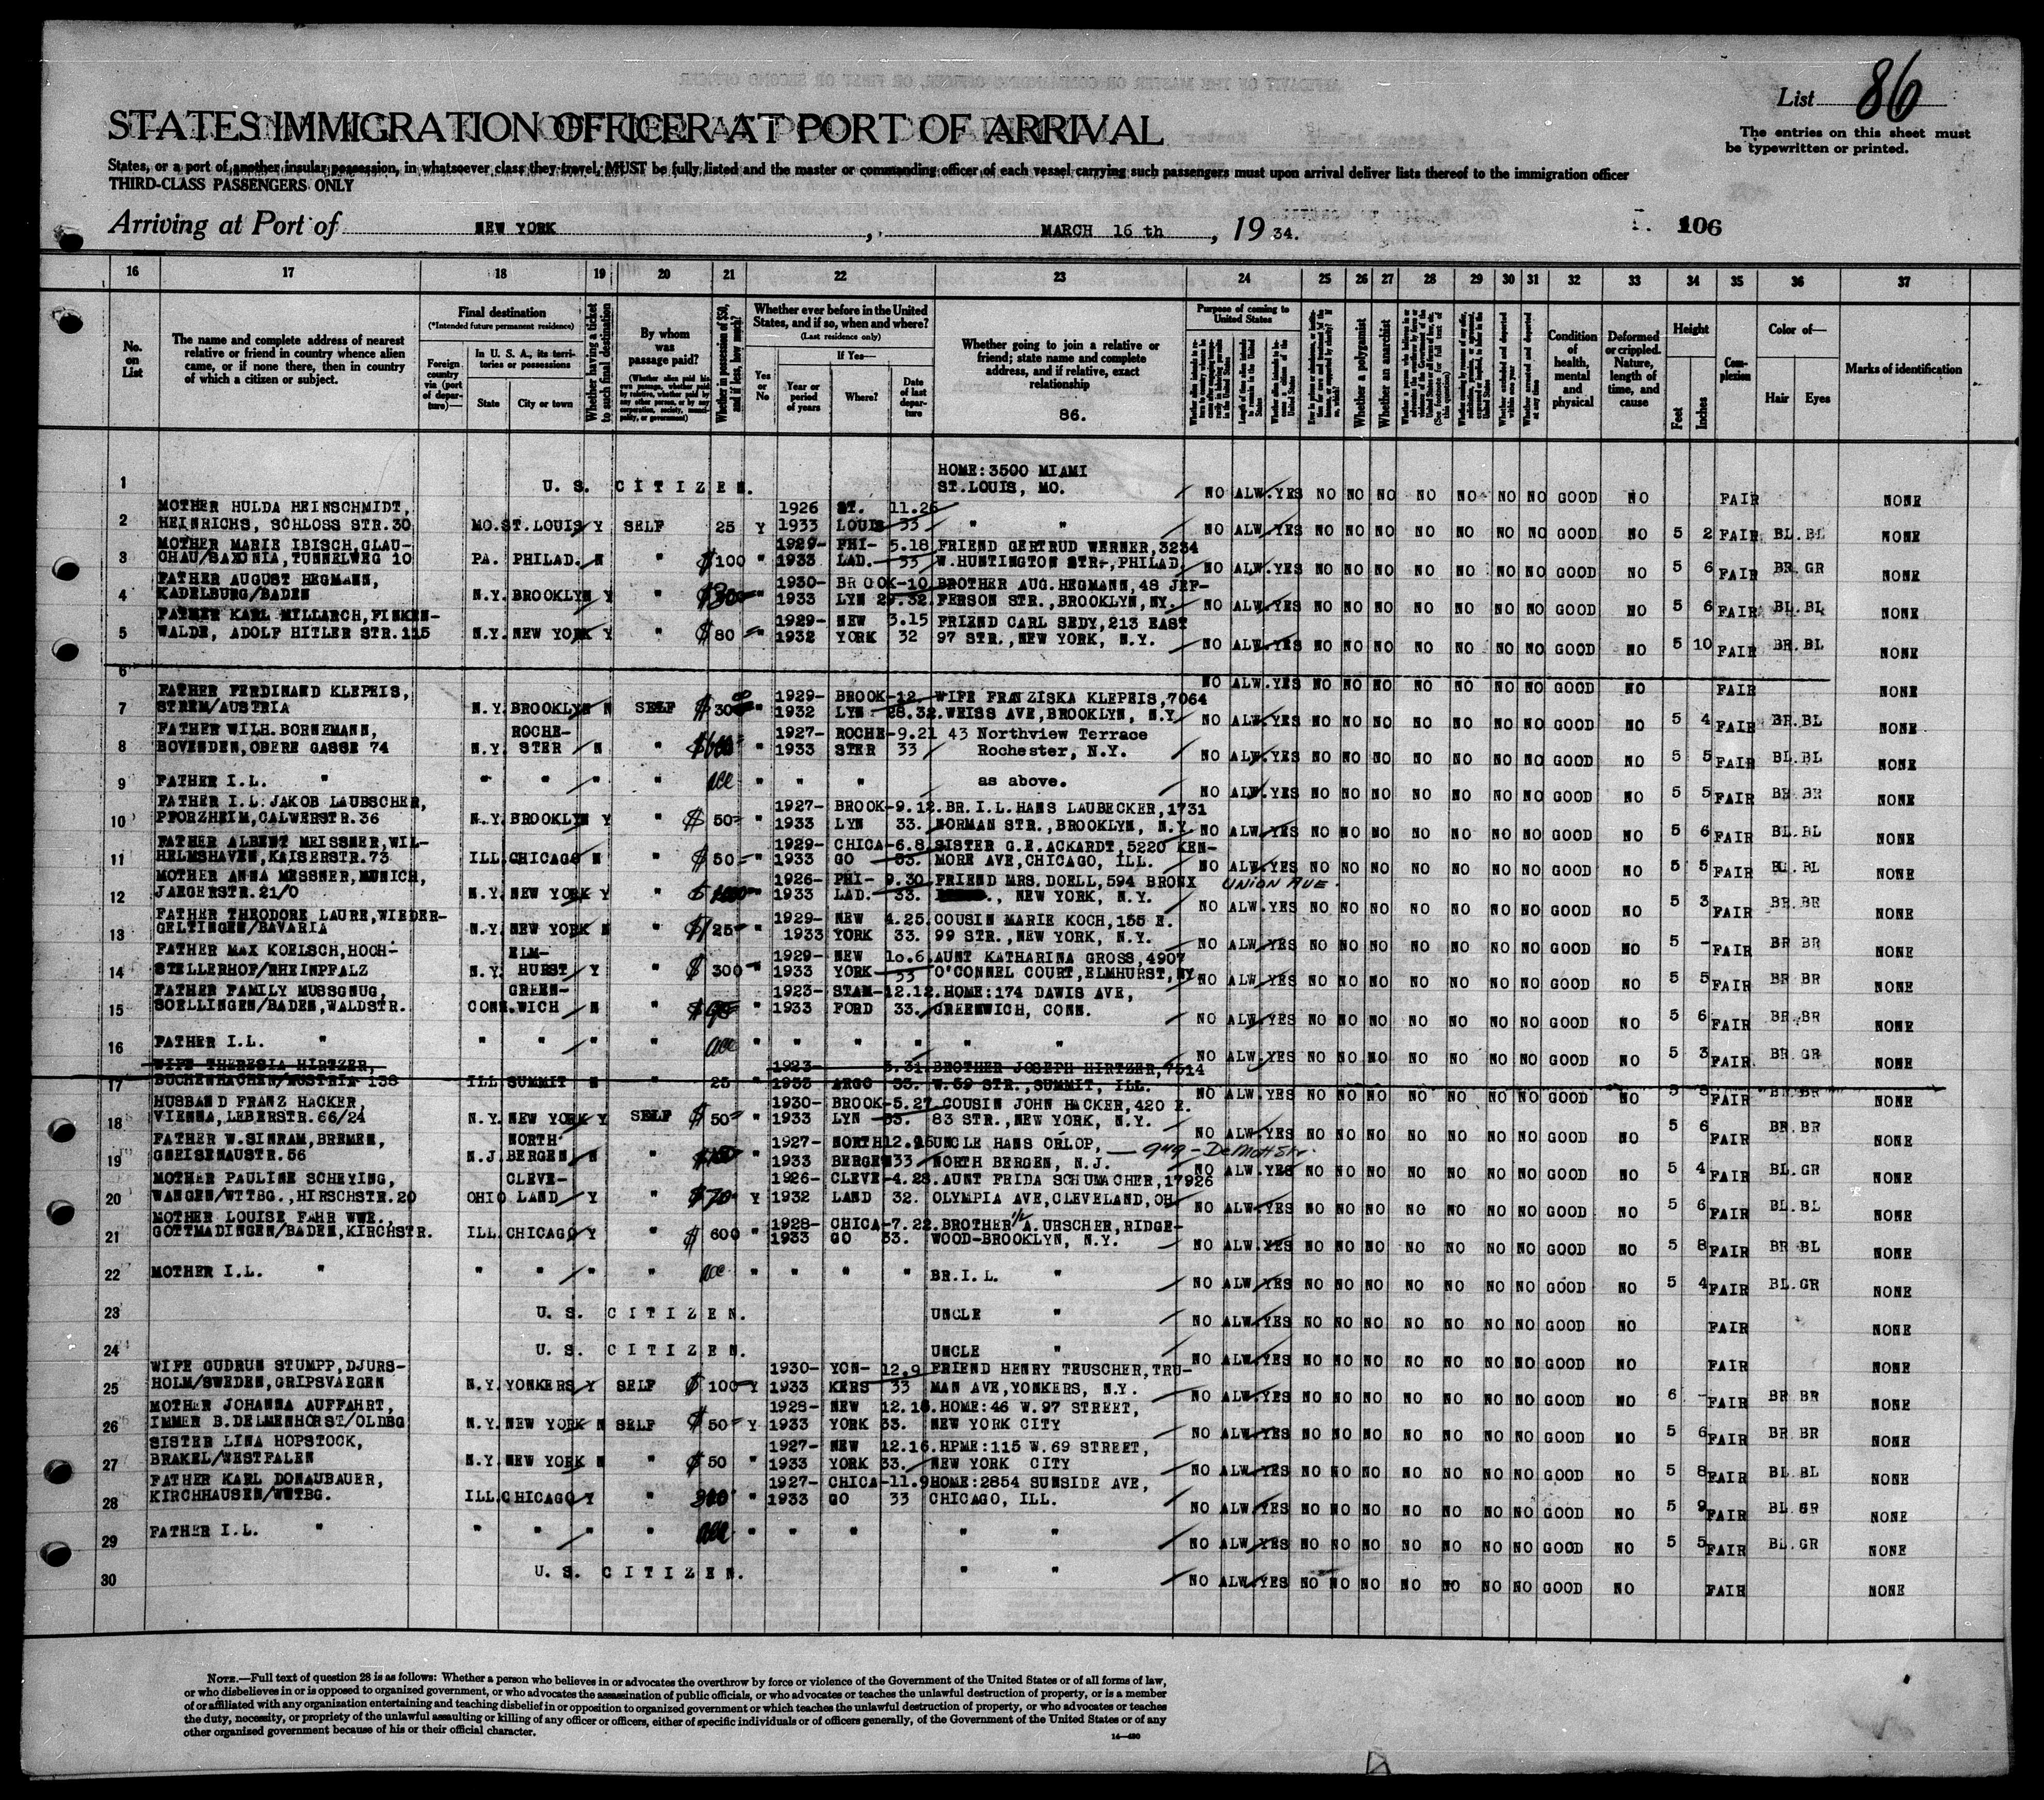 List 86
STATES IMMIGRATION OFFICER AT PORT OF ARRIVAL
The entries on this sheet must
be typewritten or printed.
States, or a port of another insular possession, in whatsoever class they travel, MUST be fully listed and the master or commanding officer of each vessel carrying such passengers must upon arrival deliver lists thereof to the immigration officer
THIRD-CLASS PASSENGERS ONLY
Arriving at Port of NEW YORK, MARCH 16 th, 19 34. 106
16 17 18 19 20 21 22 23 24 25 26 27 28 29 30 31 32 33 34 35 36 37
No. on List
The name and complete address of nearest
relative or friend in country whence alien
came, or if none there, then in country
of which a citizen or subject.
Final destination
(*Intended future permanent residence)
Foreign country via (port of departure)—
In U. S. A., its territories or possessions
State City or town
Whether having a ticket to such final destination
By whom was passage paid?
(Whether alien paid his own passage, whether paid by relative, whether paid by any other person, or by any corporation, society, municipality, or government)
Whether in possession of $50, and if less, how much?
Whether ever before in the United
States, and if so, when and where?
(Last residence only)
Yes or No
If Yes—
Year or period of years Where? Date of last departure
Whether going to join a relative or
friend; state name and complete
address, and if relative, exact
relationship
86.
Purpose of coming to United States
Whether a polygamist
Whether an anarchist
Condition of health, mental and physical
Deformed or crippled. Nature, length of time, and cause
Height
Feet Inches
Complexion
Color of—
Hair Eyes
Marks of identification
HOME:3500 MIAMI
1 U. S. CITIZEN. ST.LOUIS, MO. NO ALW. YES NO NO NO NO NO NO NO GOOD NO FAIR NONE
MOTHER HULDA HEINSCHMIDT, 1926 ST. 11.26
2 HEINRICHS, SCHLOSS STR.30 MO. ST. LOUIS Y SELF 25 Y 1933 LOUIS 33 " " NO ALW. YES NO NO NO NO NO NO NO GOOD NO 5 2 FAIR BL. BL NONE
MOTHER MARIE IBISCH GLAU- 1929- PHI- 5.18 FRIEND GERTRUD WERNER,3234
3 CHAU/SAXONIA, TUNNELWEG 10 PA. PHILAD. N " $100 " 1933 LAD. 33 W.HUNTINGTON STR-,PHILAD. NO ALW. YES NO NO NO NO NO NO NO GOOD NO 5 6 FAIR BR. GR NONE
FATHER AUGUST HEGMANN, 1930- BROOK-10. BROTHER AUG.HEGMANN,48 JEF-
4 KADELBURG/BADEN N.Y. BROOKLYN Y " $30 " 1933 LYN 29.32. FERSON STR.,BROOKLYN,NY. NO ALW. YES NO NO NO NO NO NO NO GOOD NO 5 6 FAIR BL. BL NONE
FATHER KARL MILLARCH,FINKEN- 1929- NEW 3.15 FRIEND CARL SEDY,213 EAST
5 WALDE, ADOLF HITLER STR.115 N.Y. NEW YORK Y " $ 80 " 1932 YORK 32 97 STR.,NEW YORK, N.Y. NO ALW. YES NO NO NO NO NO NO NO GOOD NO 5 10 FAIR BR. BL NONE
6 NO ALW. YES NO NO NO NO NO NO NO GOOD NO FAIR NONE
FATHER FERDINAND KLEPEIS, 1929- BROOK-12. WIFE FRANZISKA KLEPEIS,7064
7 STREM/AUSTRIA N.Y. BROOKLYN N SELF $ 30 " 1932 LYN 28.32. WEISS AVE,BROOKLYN, N.Y. NO ALW. YES NO NO NO NO NO NO NO GOOD NO 5 4 FAIR BR. BL NONE
FATHER WILH.BORNEMANN, ROCHE- 1927- ROCHE-9.21 43 Northview Terrace
8 BOVENDEN,OBERE GASSE 74 N.Y. STER N " " 1933 STER 33 Rochester, N.Y. NO ALW. YES NO NO NO NO NO NO NO GOOD NO 5 5 FAIR BL. BL NONE
9 FATHER I.L. " " " " " acc " " " as above. NO ALW. YES NO NO NO NO NO NO NO GOOD NO 5 5 FAIR BR. BR NONE
FATHER I.L. JAKOB LAUBSCHER, 1927- BROOK-9.12. BR.I.L. HANS LAUBECKER,1731
10 PFORZHEIM,CALWERSTR.36 N.Y. BROOKLYN Y " $ 50 " 1933 LYN 33. NORMAN STR.,BROOKLYN, N.Y. NO ALW. YES NO NO NO NO NO NO NO GOOD NO 5 6 FAIR BL. BL NONE
FATHER ALBERT MEISSNER,WIL- 1929- CHICA-6.8. SISTER G.E.ACKARDT,5220 KEN-
11 HELMSHAVEN,KAISERSTR.73 ILL. CHICAGO N " $ 50 " 1933 GO 33. MORE AVE,CHICAGO, ILL. NO ALW. YES NO NO NO NO NO NO NO GOOD NO 5 5 FAIR BL. BL NONE
MOTHER ANNA MESSNER,MUNICH, 1926- PHI- 9.30. FRIEND MRS.DOELL,594 BRONX UNION AVE.
12 JAEGERSTR.21/0 N.Y. NEW YORK Y " " 1933 LAD. 33. , NEW YORK, N.Y. NO ALW. YES NO NO NO NO NO NO NO GOOD NO 5 3 FAIR BR. BR NONE
FATHER THEODORE LAURE,WIEDER- 1929- NEW 4.25. COUSIN MARIE KOCH,155 E.
13 GELTINGEN/BAVARIA N.Y. NEW YORK N " $125 " 1933 YORK 33. 99 STR.,NEW YORK, N.Y. NO ALW. YES NO NO NO NO NO NO NO GOOD NO 5 - FAIR BR BR NONE
FATHER MAX KOELSCH,HOCH- ELM- 1929- NEW 10.6. AUNT KATHARINA GROSS,4907
14 STELLERHOF/RHEINPFALZ N.Y. HURST Y " $ 300 " 1933 YORK 33 O'CONNEL COURT,ELMHURST,NY NO ALW. YES NO NO NO NO NO NO NO GOOD NO 5 5 FAIR BR BR NONE
FATHER FAMILY MUSSGNUG, GREEN- 1923- STAM-12.12. HOME:174 DAWIS AVE,
15 SOELLINGEN/BADEN,WALDSTR. CONN. WICH N " " 1933 FORD 33. GREENWICH, CONN. NO ALW. YES NO NO NO NO NO NO NO GOOD NO 5 6 FAIR BR. BR NONE
16 FATHER I.L. " " " " " acc " " " " " " NO ALW. YES NO NO NO NO NO NO NO GOOD NO 5 3 FAIR BR. GR NONE
WIFE THERESIA HIRTZER, 1923- 5.31. BROTHER JOSEPH HIRTZER,7514
17 BUCHENHACHEN/AUSTRIA 138 ILL SUMMIT N " 25 " 1933 ARGO 33. W.59 STR.,SUMMIT, ILL. NO ALW. YES NO NO NO NO NO NO NO GOOD NO 5 5 FAIR BR. BR NONE
HUSBAND FRANZ HACKER, 1930- BROOK-5.27. COUSIN JOHN HACKER,420 E.
18 VIENNA,LEBERSTR.66/24 N.Y. NEW YORK Y SELF $ 50 " 1933 LYN 33. 83 STR.,NEW YORK, N.Y. NO ALW. YES NO NO NO NO NO NO NO GOOD NO 5 6 FAIR BR. BR NONE
FATHER W.SINRAM,BREMEN, NORTH 1927- NORTH 12.26 UNCLE HANS ORLOP, — 949 - DeMott Str.
19 GNEISENAUSTR.56 N.J. BERGEN N " " 1933 BERGEN 33 NORTH BERGEN, N.J. NO ALW. YES NO NO NO NO NO NO NO GOOD NO 5 4 FAIR BL. GR NONE
MOTHER PAULINE SCHEYING, CLEVE- 1926- CLEVE-4.28. AUNT FRIDA SCHUMACHER,17926
20 WANGEN/WTTBG.,HIRSCHSTR.20 OHIO LAND Y " $70 Y 1932 LAND 32. OLYMPIA AVE,CLEVELAND,OH. NO ALW. YES NO NO NO NO NO NO NO GOOD NO 5 6 FAIR BL. BL NONE
MOTHER LOUISE FAHR WWE., 1928- CHICA-7.22. BROTHER A.URSCHER,RIDGE-
21 GOTTMADINGEN/BADEN,KIRCHSTR. ILL. CHICAGO Y " $ 600 " 1933 GO 33. WOOD-BROOKLYN, N.Y. NO ALW. YES NO NO NO NO NO NO NO GOOD NO 5 8 FAIR BR BL NONE
22 MOTHER I.L. " " " " " acc " " " " BR.I.L. " NO ALW. YES NO NO NO NO NO NO NO GOOD NO 5 4 FAIR BL. GR NONE
23 U. S. CITIZEN. UNCLE " NO ALW. YES NO NO NO NO NO NO NO GOOD NO FAIR NONE
24 U. S. CITIZEN. UNCLE " NO ALW. YES NO NO NO NO NO NO NO GOOD NO FAIR NONE
WIFE GUDRUN STUMPP,DJURS- 1930- YON- 12.9 FRIEND HENRY TEUSCHER,TRU-
25 HOLM/SWEDEN,GRIPSVAEGEN N.Y. YONKERS Y SELF $ 100 Y 1933 KERS 33 MAN AVE,YONKERS, N.Y. NO ALW. YES NO NO NO NO NO NO NO GOOD NO 6 - FAIR BR BR NONE
MOTHER JOHANNA AUFFAHRT, 1928- NEW 12.18. HOME:46 W.97 STREET,
26 IMMER B.DELMENHORST/OLDBG N.Y. NEW YORK N SELF $ 50 Y 1933 YORK 33. NEW YORK CITY NO ALW. YES NO NO NO NO NO NO NO GOOD NO 5 6 FAIR BR BR NONE
SISTER LINA HOPSTOCK, 1927- NEW 12.16. HPME:115 W.69 STREET,
27 BRAKEL/WESTFALEN N.Y. NEW YORK N " $ 50 " 1933 YORK 33. NEW YORK CITY NO ALW. YES NO NO NO NO NO NO NO GOOD NO 5 8 FAIR BL. BL NONE
FATHER KARL DONAUBAUER, 1927- CHICA-11.9 HOME:2854 SUNSIDE AVE,
28 KIRCHHAUSEN/WTTBG. ILL. CHICAGO Y " 300 " 1933 GO 33 CHICAGO, ILL. NO ALW. YES NO NO NO NO NO NO NO GOOD NO 5 9 FAIR BL. GR NONE
29 FATHER I.L. " " " " " acc " " " " " NO ALW. YES NO NO NO NO NO NO NO GOOD NO 5 5 FAIR BL. GR NONE
30 U. S. CITIZEN. " " NO ALW. YES NO NO NO NO NO NO NO GOOD NO FAIR NONE
NOTE.—Full text of question 28 is as follows: Whether a person who believes in or advocates the overthrow by force or violence of the Government of the United States or of all forms of law,
or who disbelieves in or is opposed to organized government, or who advocates the assassination of public officials, or who advocates or teaches the unlawful destruction of property, or is a member
of or affiliated with any organization entertaining and teaching disbelief in or opposition to organized government or which teaches the unlawful destruction of property, or who advocates or teaches
the duty, necessity, or propriety of the unlawful assaulting or killing of any officer or officers, either of specific individuals or of officers generally, of the Government of the United States or of any
other organized government because of his or their official character.
14—430